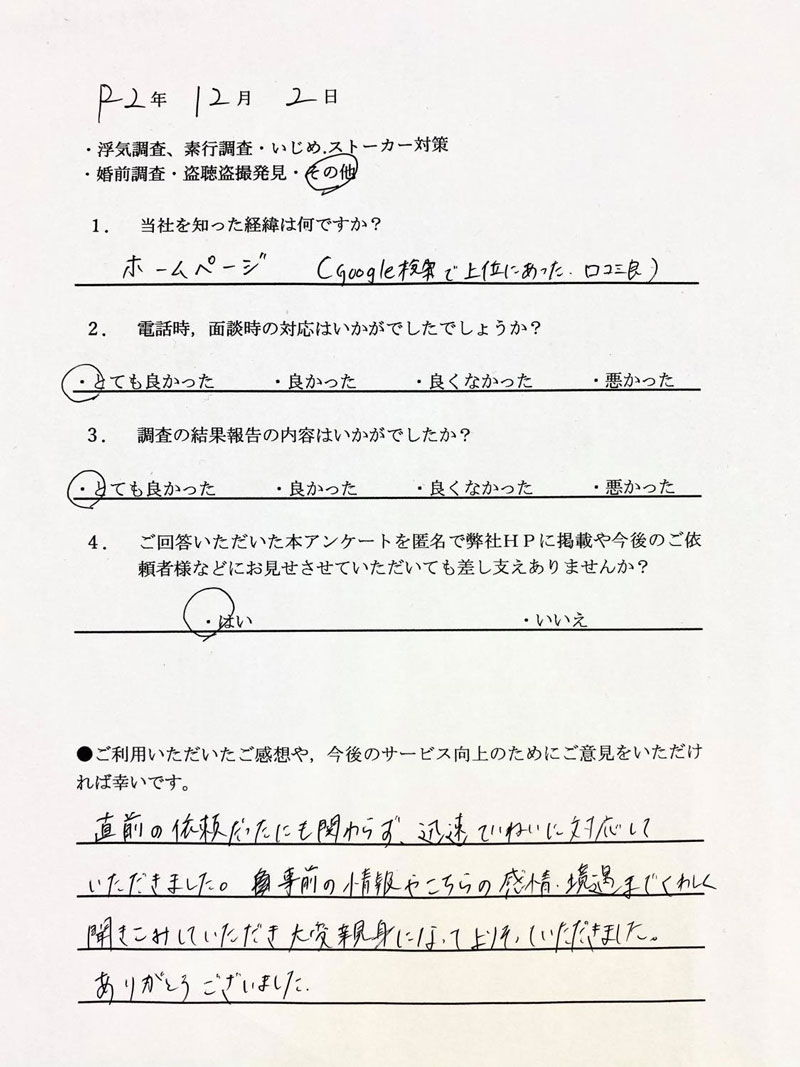 R2年 12月 2日
・浮気調査、素行調査・いじめ.ストーカー対策
・婚前調査・盗聴盗撮発見・その他
1. 当社を知った経緯は何ですか？
ホームページ (google検索で上位にあった.口コミ良)
2. 電話時，面談時の対応はいかがでしたでしょうか？
・とても良かった ・良かった ・良くなかった ・悪かった
3. 調査の結果報告の内容はいかがでしたか？
・とても良かった ・良かった ・良くなかった ・悪かった
4. ご回答いただいた本アンケートを匿名で弊社ＨＰに掲載や今後のご依
頼者様などにお見せさせていただいても差し支えありませんか？
・はい ・いいえ
●ご利用いただいたご感想や，今後のサービス向上のためにご意見をいただけ
れば幸いです。
直前の依頼だったにも関わらず、迅速ていねいに対応して
いただきました。事前の情報やこちらの感情、境遇までくわしく
聞きこみしていただき大変親身になってよりそっていただきました。
ありがとうございました.